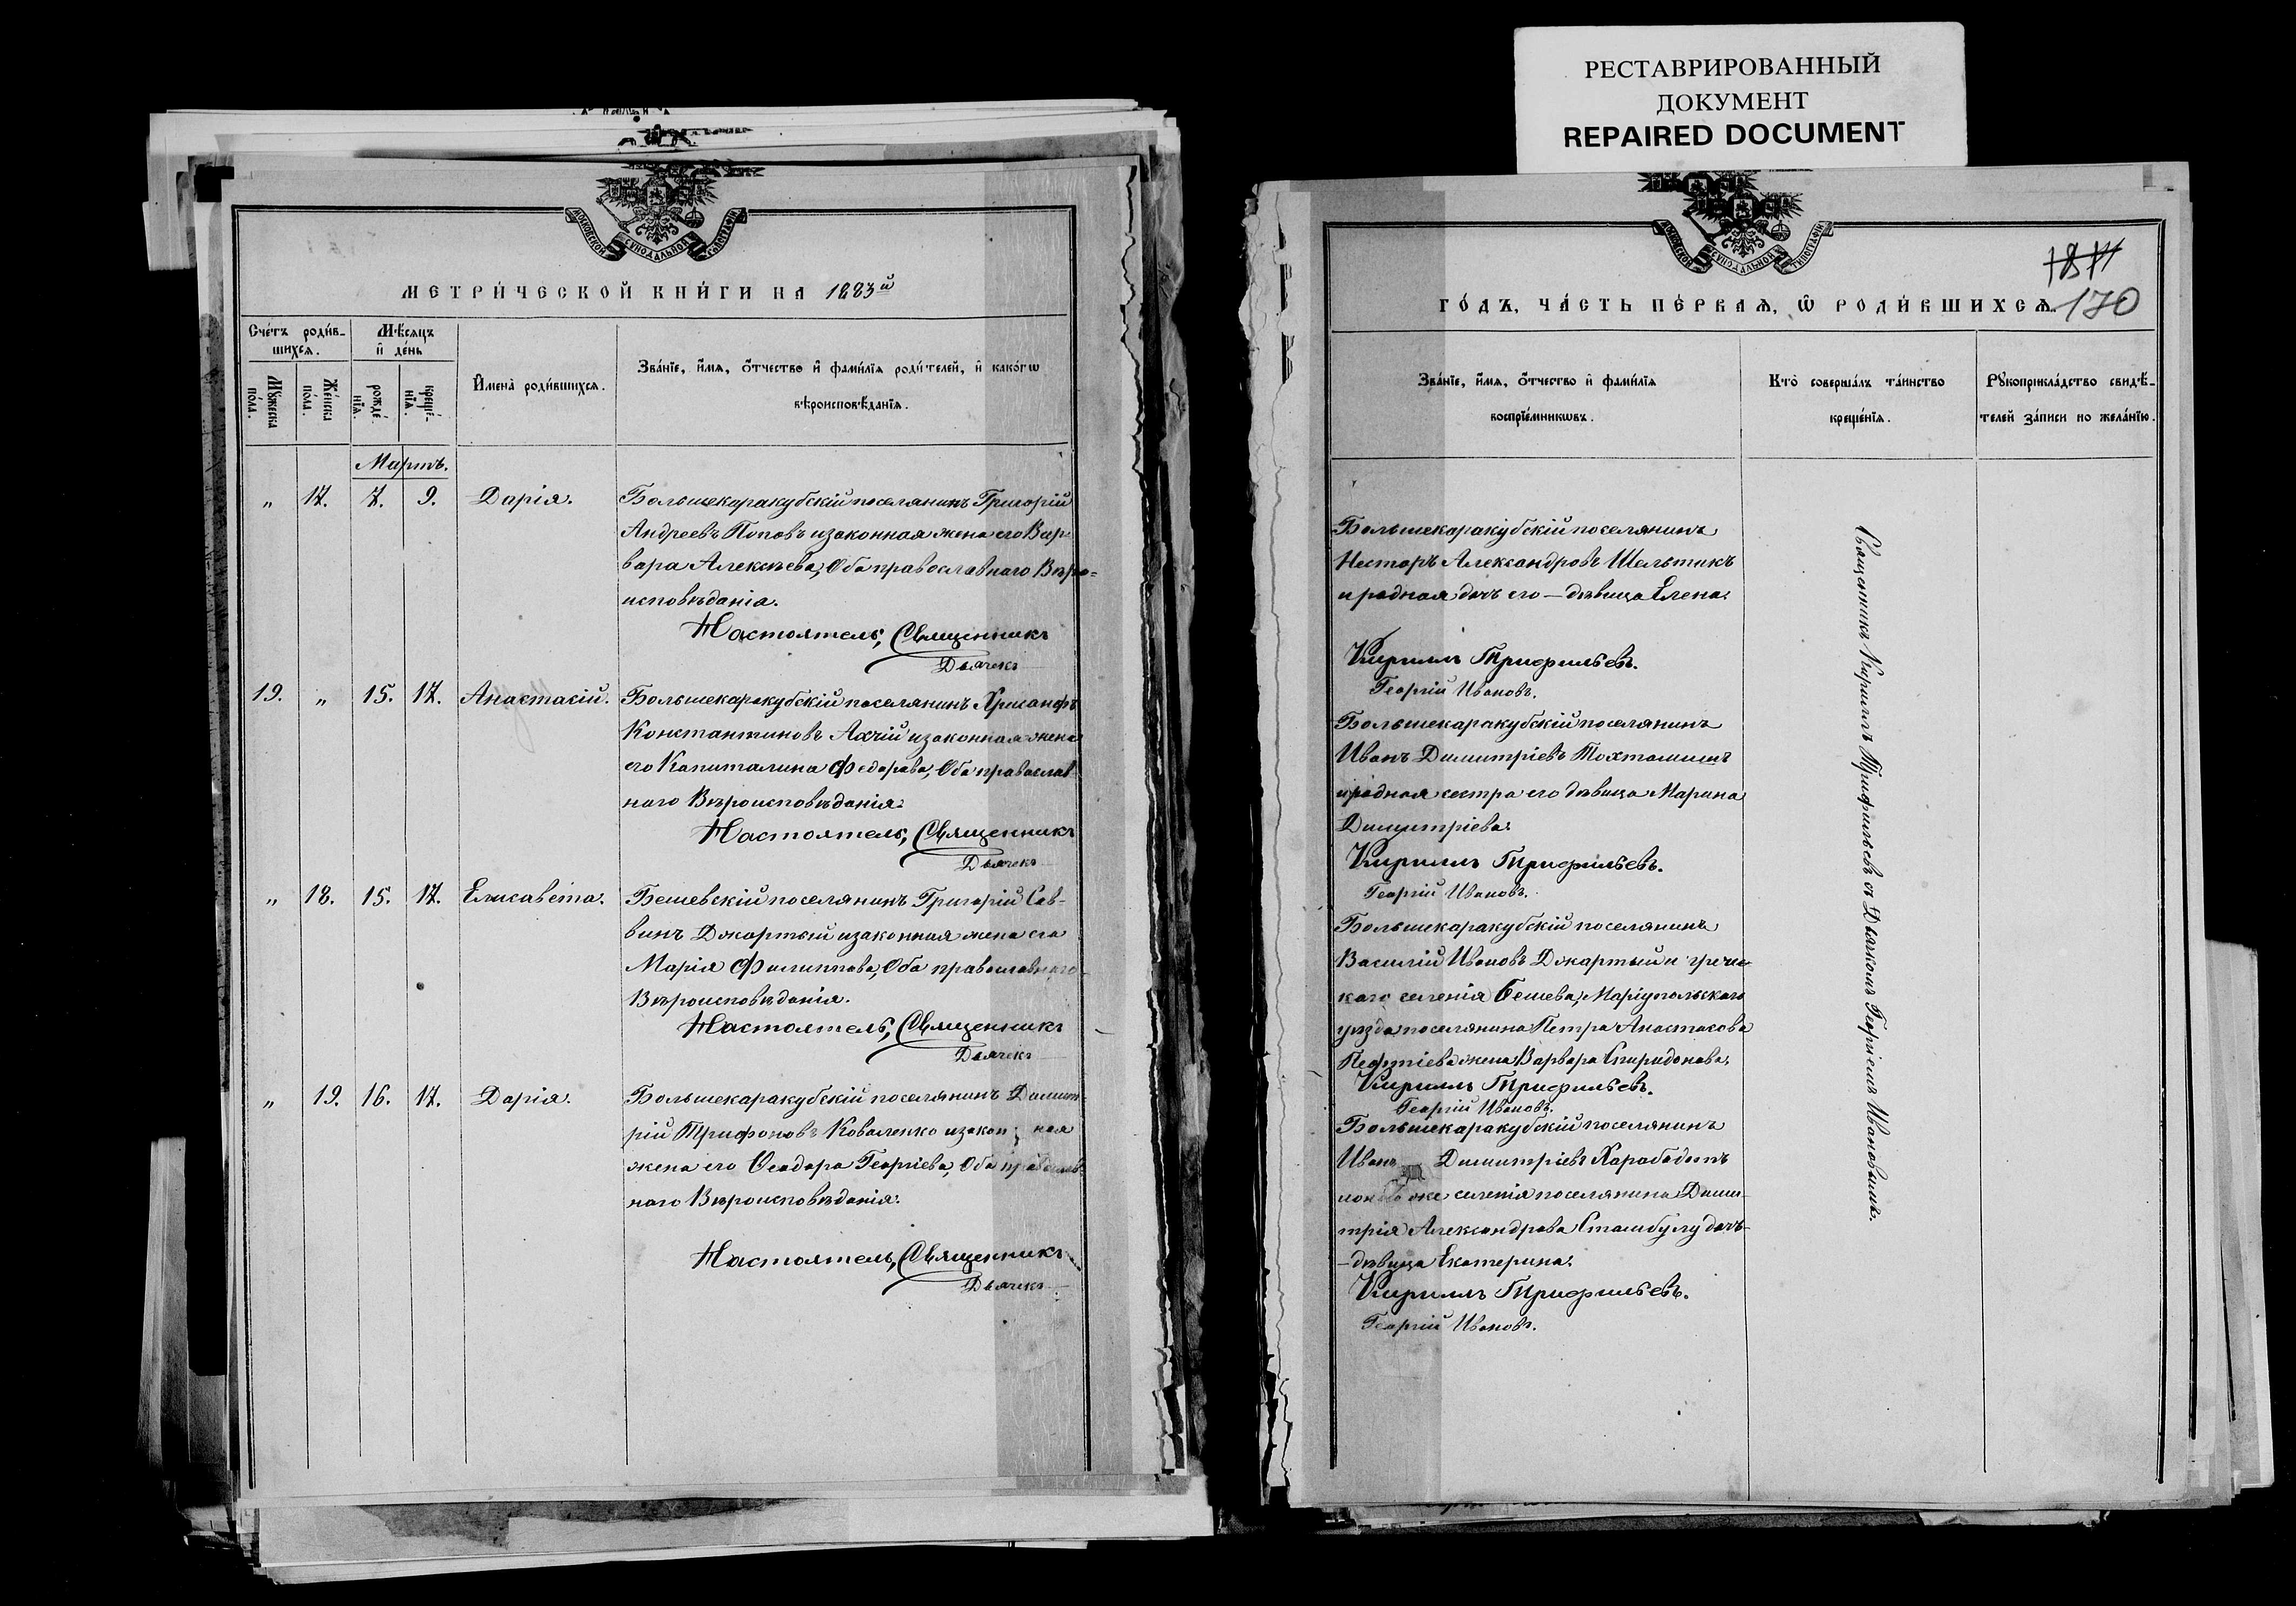 РЕСТАВРИРОВАННЫЙ
ДОКУМЕНТ
REPAIRED DOCUMENT
МОСКОВСКОЙ СѴНОДАЛЬНОЙ ТѴПОГРАФІИ
МЕТРИ́ЧЕСКОЙ КНИ́ГИ НА 1883й
Сче́тъ роди́в-
шихсѧ.
Мѣ́сѧцъ
и҆ де́нь
Мꙋжеска
по́ла.
Же́нска
по́ла.
рожде́
нїѧ.
креще́-
нїѧ.
И҆мена̀ роди́вшихсѧ.
Зва́нїе, и҆́мѧ, ѻ҆́тчество и҆ фами́лїѧ роди́телей, и҆ како́гѡ
вѣроисповѣ́данїѧ.
Мартъ.
„ 17. 7. 9. Дарія.
Большекаракубскій поселянинъ Григорій
Андреевъ Поповъ и законная жена его Вар-
вара Алексѣева, Оба православнаго Вѣро=
исповѣданія.
Настоятель, Священникъ
Дьячекъ
19. „ 15. 17. Анастасій.
Большекаракубскій поселянинъ Хрисанфъ
Константиновъ Ахчій и законная жена
его Капиталина Федорова, Оба православ
наго Вѣроисповѣданія.
Настоятель, Священникъ
Дьячекъ
„ 18. 15. 17. Елисавета.
Бешевскій поселянинъ Григорій Сав-
винъ Джартый и законная жена его
Марія Филиппова, Оба православнаго
Вѣроисповѣданія.
Настоятель, Священникъ
Дьячекъ
„ 19. 16. 17. Дарія.
Большекаракубскій поселянинъ Димит-
рій Трифоновъ Коваленко и закон ная
жена его Ѳеодора Георгіева, Оба православ-
наго Вѣроисповѣданія.
Настоятель, Священникъ
Дьячекъ
МОСКОВСКОЙ СѴНОДАЛЬНОЙ ТѴПОГРАФІИ
170
ГО́ДЪ, ЧА́СТЬ ПЕ́РВАѦ, Ѡ҆ РОДИ́ВШИХСѦ.
Зва́нїе, и҆́мѧ, ѻ҆́тчество и҆ фами́лїѧ
воспрїе́мникѡвъ.
Кто̀ соверша́лъ та́инство
креще́нїѧ.
Рꙋкоприкла́дство свидѣ́-
телей за́писи по жела́нїю.
Большекаракубскій поселянинъ
Несторъ Александровъ Шельтикъ
и родная дочь его — дѣвица Елена.
Кириллъ Трифильевъ.
Георгій Ивановъ.
Большекаракубскій поселянинъ
Иванъ Димитріевъ Тохтамышъ
и родная сестра его дѣвица Марина
Димитріева.
Кириллъ Трифильевъ.
Георгій Ивановъ.
Большекаракубскій поселянинъ
Василій Ивановъ Джартый и гречес-
каго селенія Бешева, Маріупольскаго
уѣзда поселянина Петра Анастасова
жена Варвара Спиридонова.
Кириллъ Трифильевъ.
Георгій Ивановъ.
Большекаракубскій поселянинъ
Иванъ Димитріевъ Харабадотъ
и же селенія поселянина Дими-
трія Александрова Стамбулу дочь-
— дѣвица Екатерина.
Кириллъ Трифильевъ.
Георгій Ивановъ.
Священникъ Кириллъ Трифильевъ съ Дьячкомъ Георгіемъ Ивановымъ.